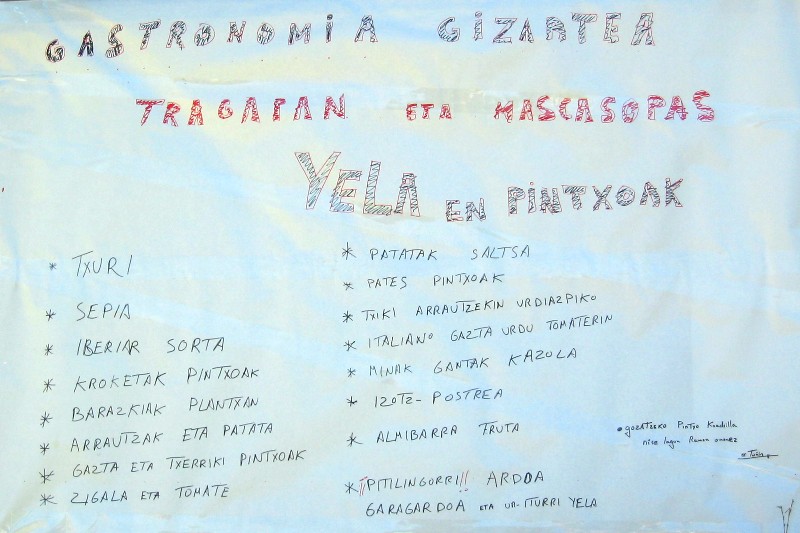 GASTRONOMIA GIZARTEA
TRAGAPAN ETA MASCASOPAS
YELA EN PINTXOAK
* TXURI
* SEPIA
* IBERIAR SORTA
* KROKETAK PINTXOAK
* BARAZKIAK PLANTXAN
* ARRAUTZAK ETA PATATA
* GAZTA ETA TXERRIKI PINTXOAK
* ZIGALA ETA TOMATE
* PATATAK SALTSA
* PATES PINTXOAK
* TXIKI ARRAUTZEKIN URDIAZPIKO
* ITALIANO GAZTA URDU TOMATERIN
* MINAK GANTAK KAZOLA
* IZOTZ- POSTREA
* ALMIBARRA FRUTA
* ¡¡PITILINGORRI!! ARDOA
GARAGARDOA ETA UR-ITURRI YELA
• gozatzeko Pintxo Kuadrilla
nire lagun Ramon omenez